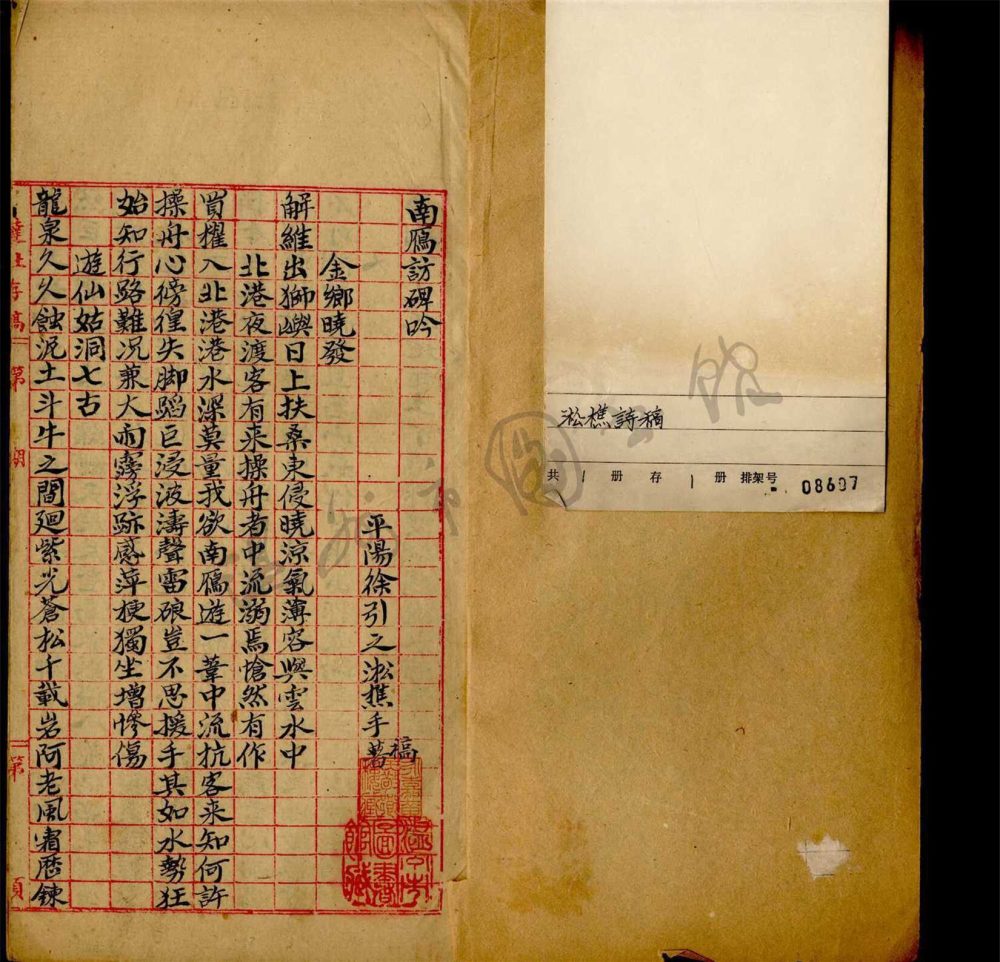 南鴈訪碑吟
平陽徐引之淞樵手稿
著
金鄉曉發
解維出獅嶼日上扶桑東侵曉涼氣薄容與雲水中
北港夜渡客有来操舟者中流溺焉愴然有作
買櫂入北港港水深莫量我欲南鴈遊一葦中流抗客来知何許
操舟心徬徨失脚蹈巨浸波濤聲雷硠豈不思援手其如水勢狂
始知行路難况兼大雨雱浮跡感萍梗獨坐增慘傷
遊仙姑洞七古
龍泉久久蝕泥土斗牛之間廻紫光蒼松千載岩阿老風霜歷鍊
社存稿
第
期
第
頁
淞樵詩稿
共 1 册 存 1 册 排架号 08607
溫州市圖書館藏